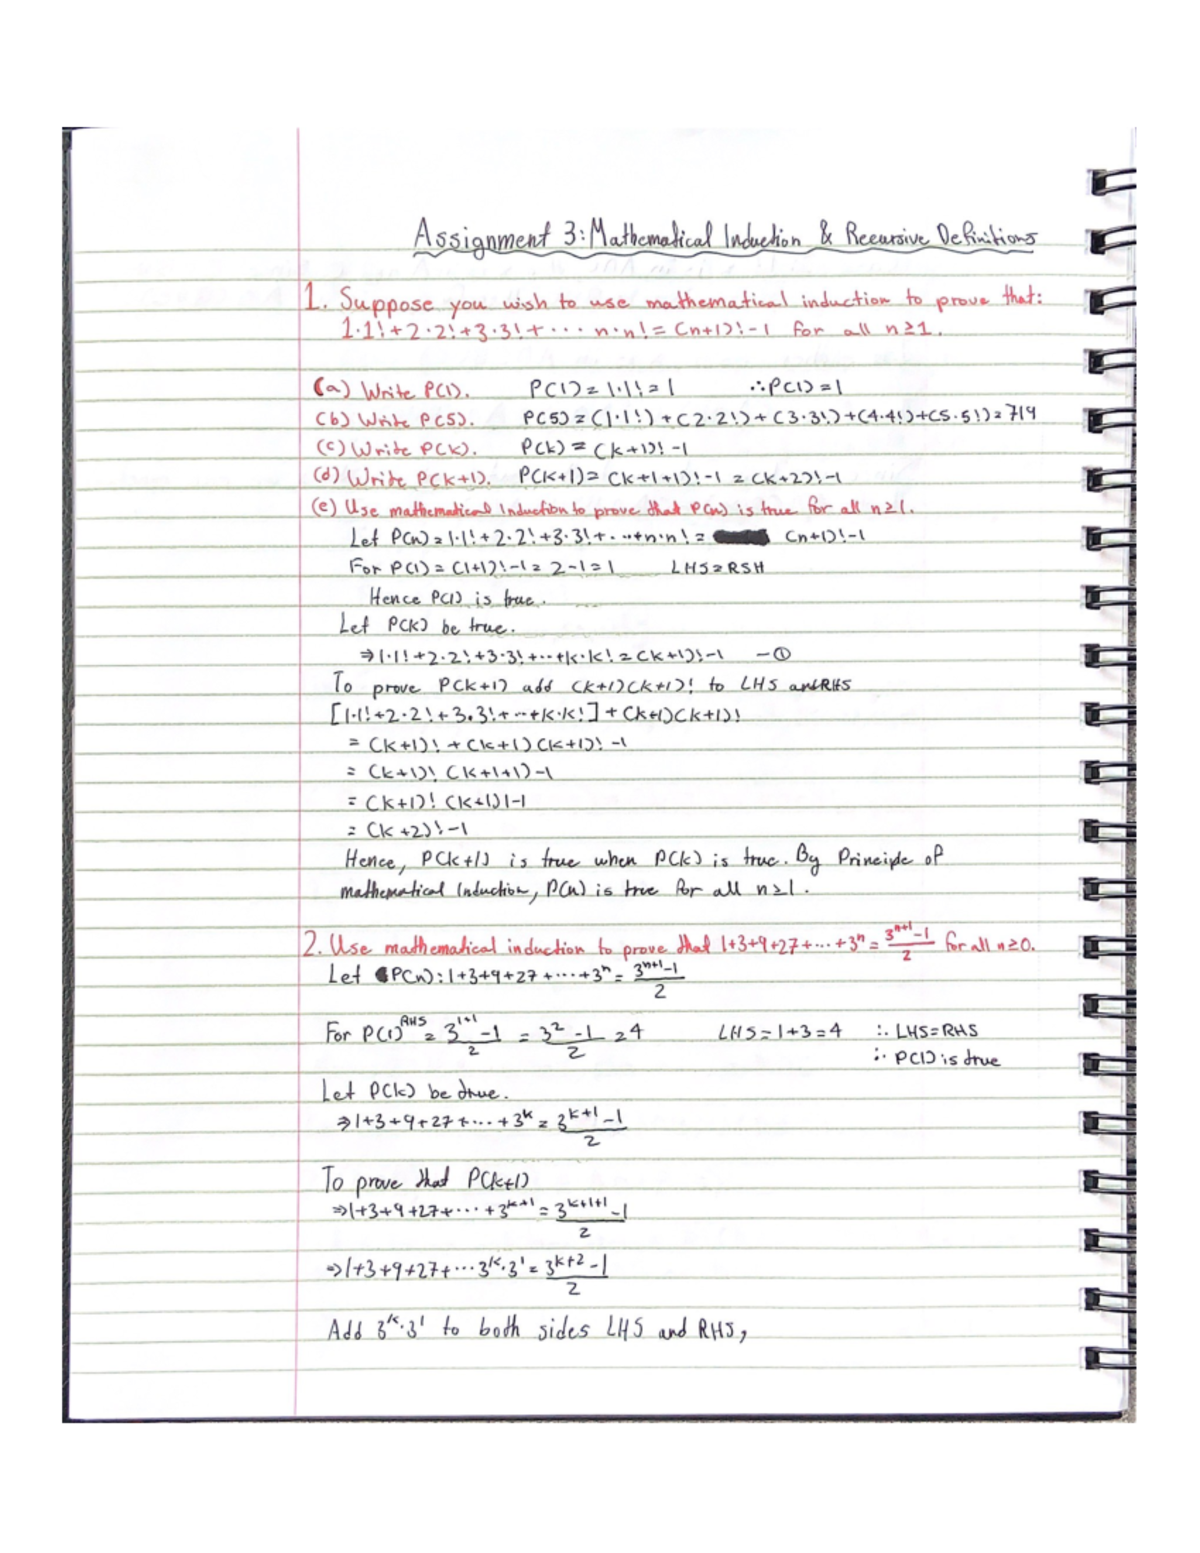 Assignment 3: Mathematical Induction & Recursive Definitions
1. Suppose you wish to use mathematical induction to prove that:
1·1!+2·2!+3·3!+··· n·n! = (n+1)!-1 for all n≥1.
(a) Write P(1). P(1) = 1·1! = 1 ∴P(1) = 1
(b) Write P(5). P(5) = (1·1!) + (2·2!) + (3·3!) + (4·4!) + (5·5!) = 719
(c) Write P(k). P(k) = (k+1)! -1
(d) Write P(k+1). P(k+1) = (k+1+1)! -1 = (k+2)! -1
(e) Use mathematical Induction to prove that P(n) is true for all n≥1.
Let P(n) = 1·1! + 2·2! +3·3! +···+n·n! = (n+1)! -1
For P(1) = (1+1)! -1 = 2-1 = 1 LHS = RSH
Hence P(1) is true.
Let P(k) be true.
⇒ 1·1! +2·2! +3·3! +···+k·k! = (k+1)! -1 —①
To prove P(k+1) add (k+1)(k+1)! to LHS and RHS
[1·1! +2·2! +3·3! +···+k·k!] + (k+1)(k+1)!
= (k+1)! + (k+1)(k+1)! -1
= (k+1)! (k+1+1) -1
= (k+1)! (k+1)1-1
= (k+2)! -1
Hence, P(k+1) is true when P(k) is true. By Principle of
mathematical Induction, P(n) is true for all n≥1.
2. Use mathematical induction to prove that 1+3+9+27+···+3ⁿ = 3ⁿ⁺¹-1/2 for all n≥0.
Let P(n): 1+3+9+27+···+3ⁿ = 3ⁿ⁺¹-1/2
For P(1) RHS = 3¹⁺¹-1/2 = 3²-1/2 = 4 LHS = 1+3 = 4 ∴ LHS = RHS
∴ P(1) is true
Let P(k) be true.
⇒ 1+3+9+27+···+3ᵏ = 3ᵏ⁺¹-1/2
To prove that P(k+1)
⇒ 1+3+9+27+···+3ᵏ⁺¹ = 3ᵏ⁺¹⁺¹-1/2
⇒ 1+3+9+27+···3ᵏ·3¹ = 3ᵏ⁺²-1/2
Add 3ᵏ·3¹ to both sides LHS and RHS,